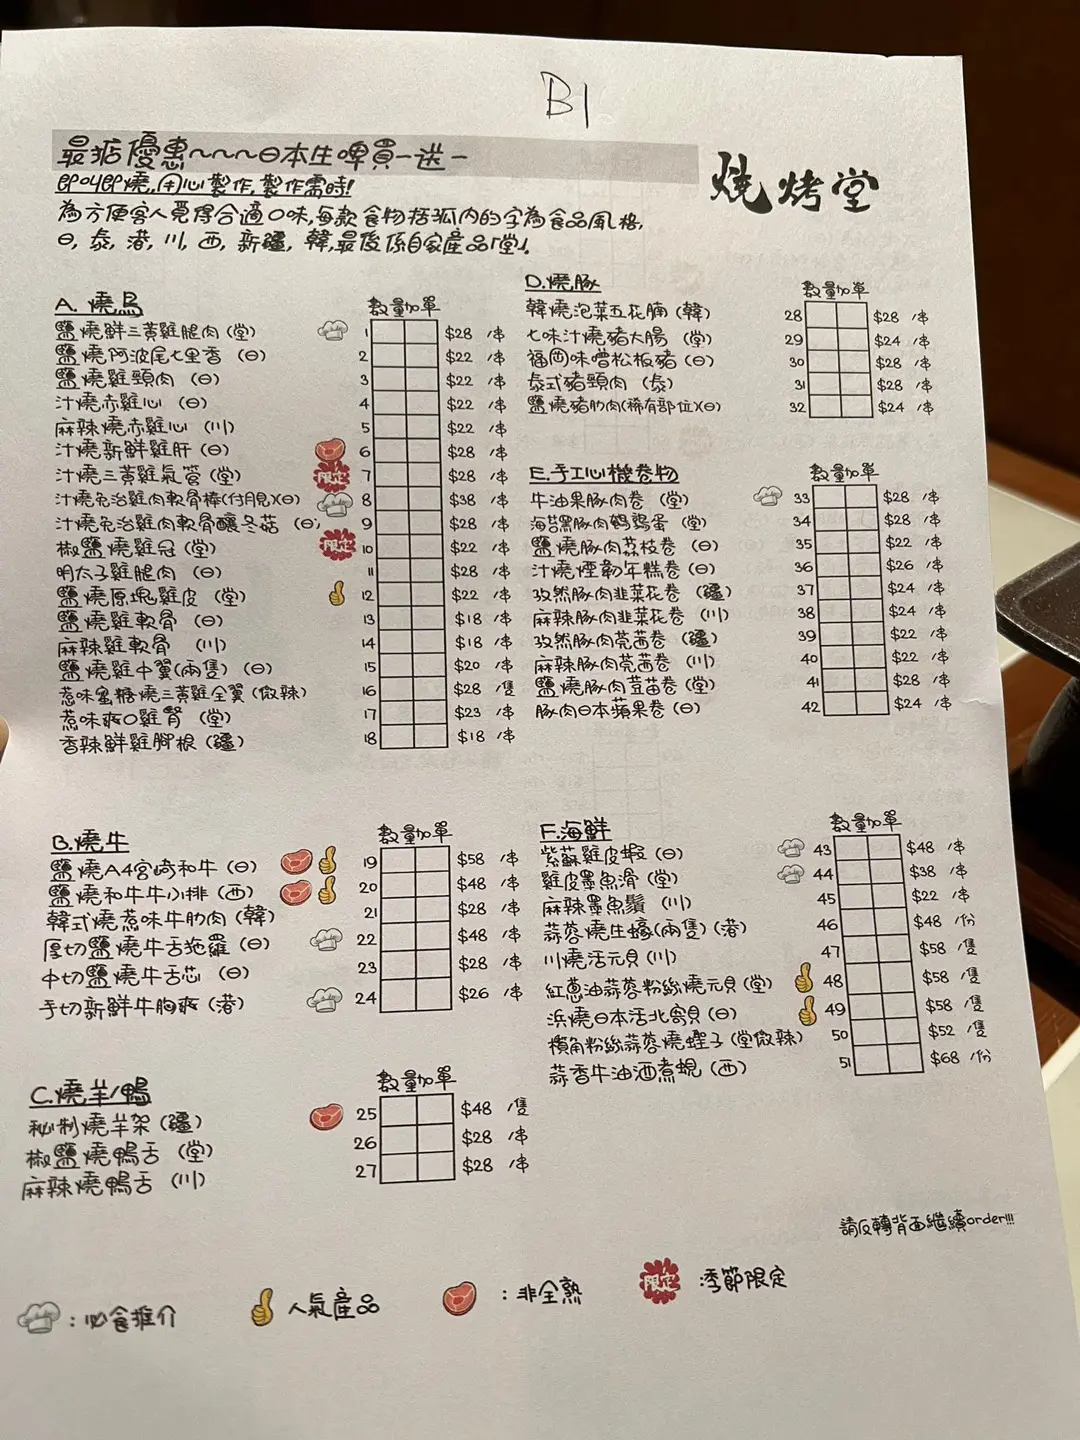 B1
最掂優惠~~~日本生啤買一送一
燒烤堂
即叫即燒,用心製作,製作需時!
為方便客人覓得合適口味,每款食物括弧內的字為食品風格,
日,泰,港,川,西,新疆,韓,最後係自家產品「堂」.
A. 燒鳥 數量加單
鹽燒鮮三黃雞腿肉 (堂) 1 $28 /串
鹽燒阿波尾七里香 (日) 2 $22 /串
鹽燒雞頸肉 (日) 3 $22 /串
汁燒赤雞心 (日) 4 $22 /串
麻辣燒赤雞心 (川) 5 $22 /串
汁燒新鮮雞肝 (日) 6 $28 /串
汁燒三黃雞氣管 (堂) 限定 7 $28 /串
汁燒免治雞肉軟骨棒(付月見)(日) 8 $38 /串
汁燒免治雞肉軟骨釀冬菇 (日) 9 $28 /串
椒鹽燒雞冠 (堂) 限定 10 $22 /串
明太子雞腿肉 (日) 11 $28 /串
鹽燒原塊雞皮 (堂) 12 $22 /串
鹽燒雞軟骨 (日) 13 $18 /串
麻辣雞軟骨 (川) 14 $18 /串
鹽燒雞中翼(兩隻) (日) 15 $20 /串
惹味蜜糖燒三黃雞全翼 (微辣) 16 $28 /隻
惹味爽口雞腎 (堂) 17 $23 /串
香辣鮮雞腳根 (疆) 18 $18 /串
B.燒牛 數量加單
鹽燒A4宮崎和牛 (日) 19 $58 /串
鹽燒和牛牛小排 (西) 20 $48 /串
韓式燒惹味牛肋肉 (韓) 21 $28 /串
厚切鹽燒牛舌拖羅 (日) 22 $48 /串
中切鹽燒牛舌芯 (日) 23 $28 /串
手切新鮮牛胸爽 (港) 24 $26 /串
C.燒羊/鴨 數量加單
秘制燒羊架 (疆) 25 $48 /隻
椒鹽燒鴨舌 (堂) 26 $28 /串
麻辣燒鴨舌 (川) 27 $28 /串
D.燒豚 數量加單
韓燒泡菜五花腩 (韓) 28 $28 /串
七味汁燒豬大腸 (堂) 29 $24 /串
福岡味噌松板豬 (日) 30 $28 /串
泰式豬頸肉 (泰) 31 $28 /串
鹽燒豬肋肉(稀有部位)(日) 32 $24 /串
E.手工心機卷物 數量加單
牛油果豚肉卷 (堂) 33 $28 /串
海苔黑豚肉鵪鶉蛋 (堂) 34 $28 /串
鹽燒豚肉荔枝卷 (日) 35 $22 /串
汁燒煙韌年糕卷 (日) 36 $26 /串
孜然豚肉韭菜花卷 (疆) 37 $24 /串
麻辣豚肉韭菜花卷 (川) 38 $24 /串
孜然豚肉芫茜卷 (疆) 39 $22 /串
麻辣豚肉芫茜卷 (川) 40 $22 /串
鹽燒豚肉荳苗卷 (堂) 41 $28 /串
豚肉日本蘋果卷 (日) 42 $24 /串
F.海鮮 數量加單
紫蘇雞皮蝦 (日) 43 $48 /串
雞皮墨魚滑 (堂) 44 $38 /串
麻辣墨魚鬚 (川) 45 $22 /串
蒜蓉燒生蠔(兩隻) (港) 46 $48 /份
川燒活元貝 (川) 47 $58 /隻
紅蔥油蒜蓉粉絲燒元貝 (堂) 48 $58 /隻
浜燒日本活北寄貝 (日) 49 $58 /隻
欖角粉絲蒜蓉燒蟶子 (堂微辣) 50 $52 /隻
蒜香牛油酒煮蜆 (西) 51 $68 /份
請反轉背面繼續order!!!
:必食推介
人氣產品
:非全熟
限定 :季節限定